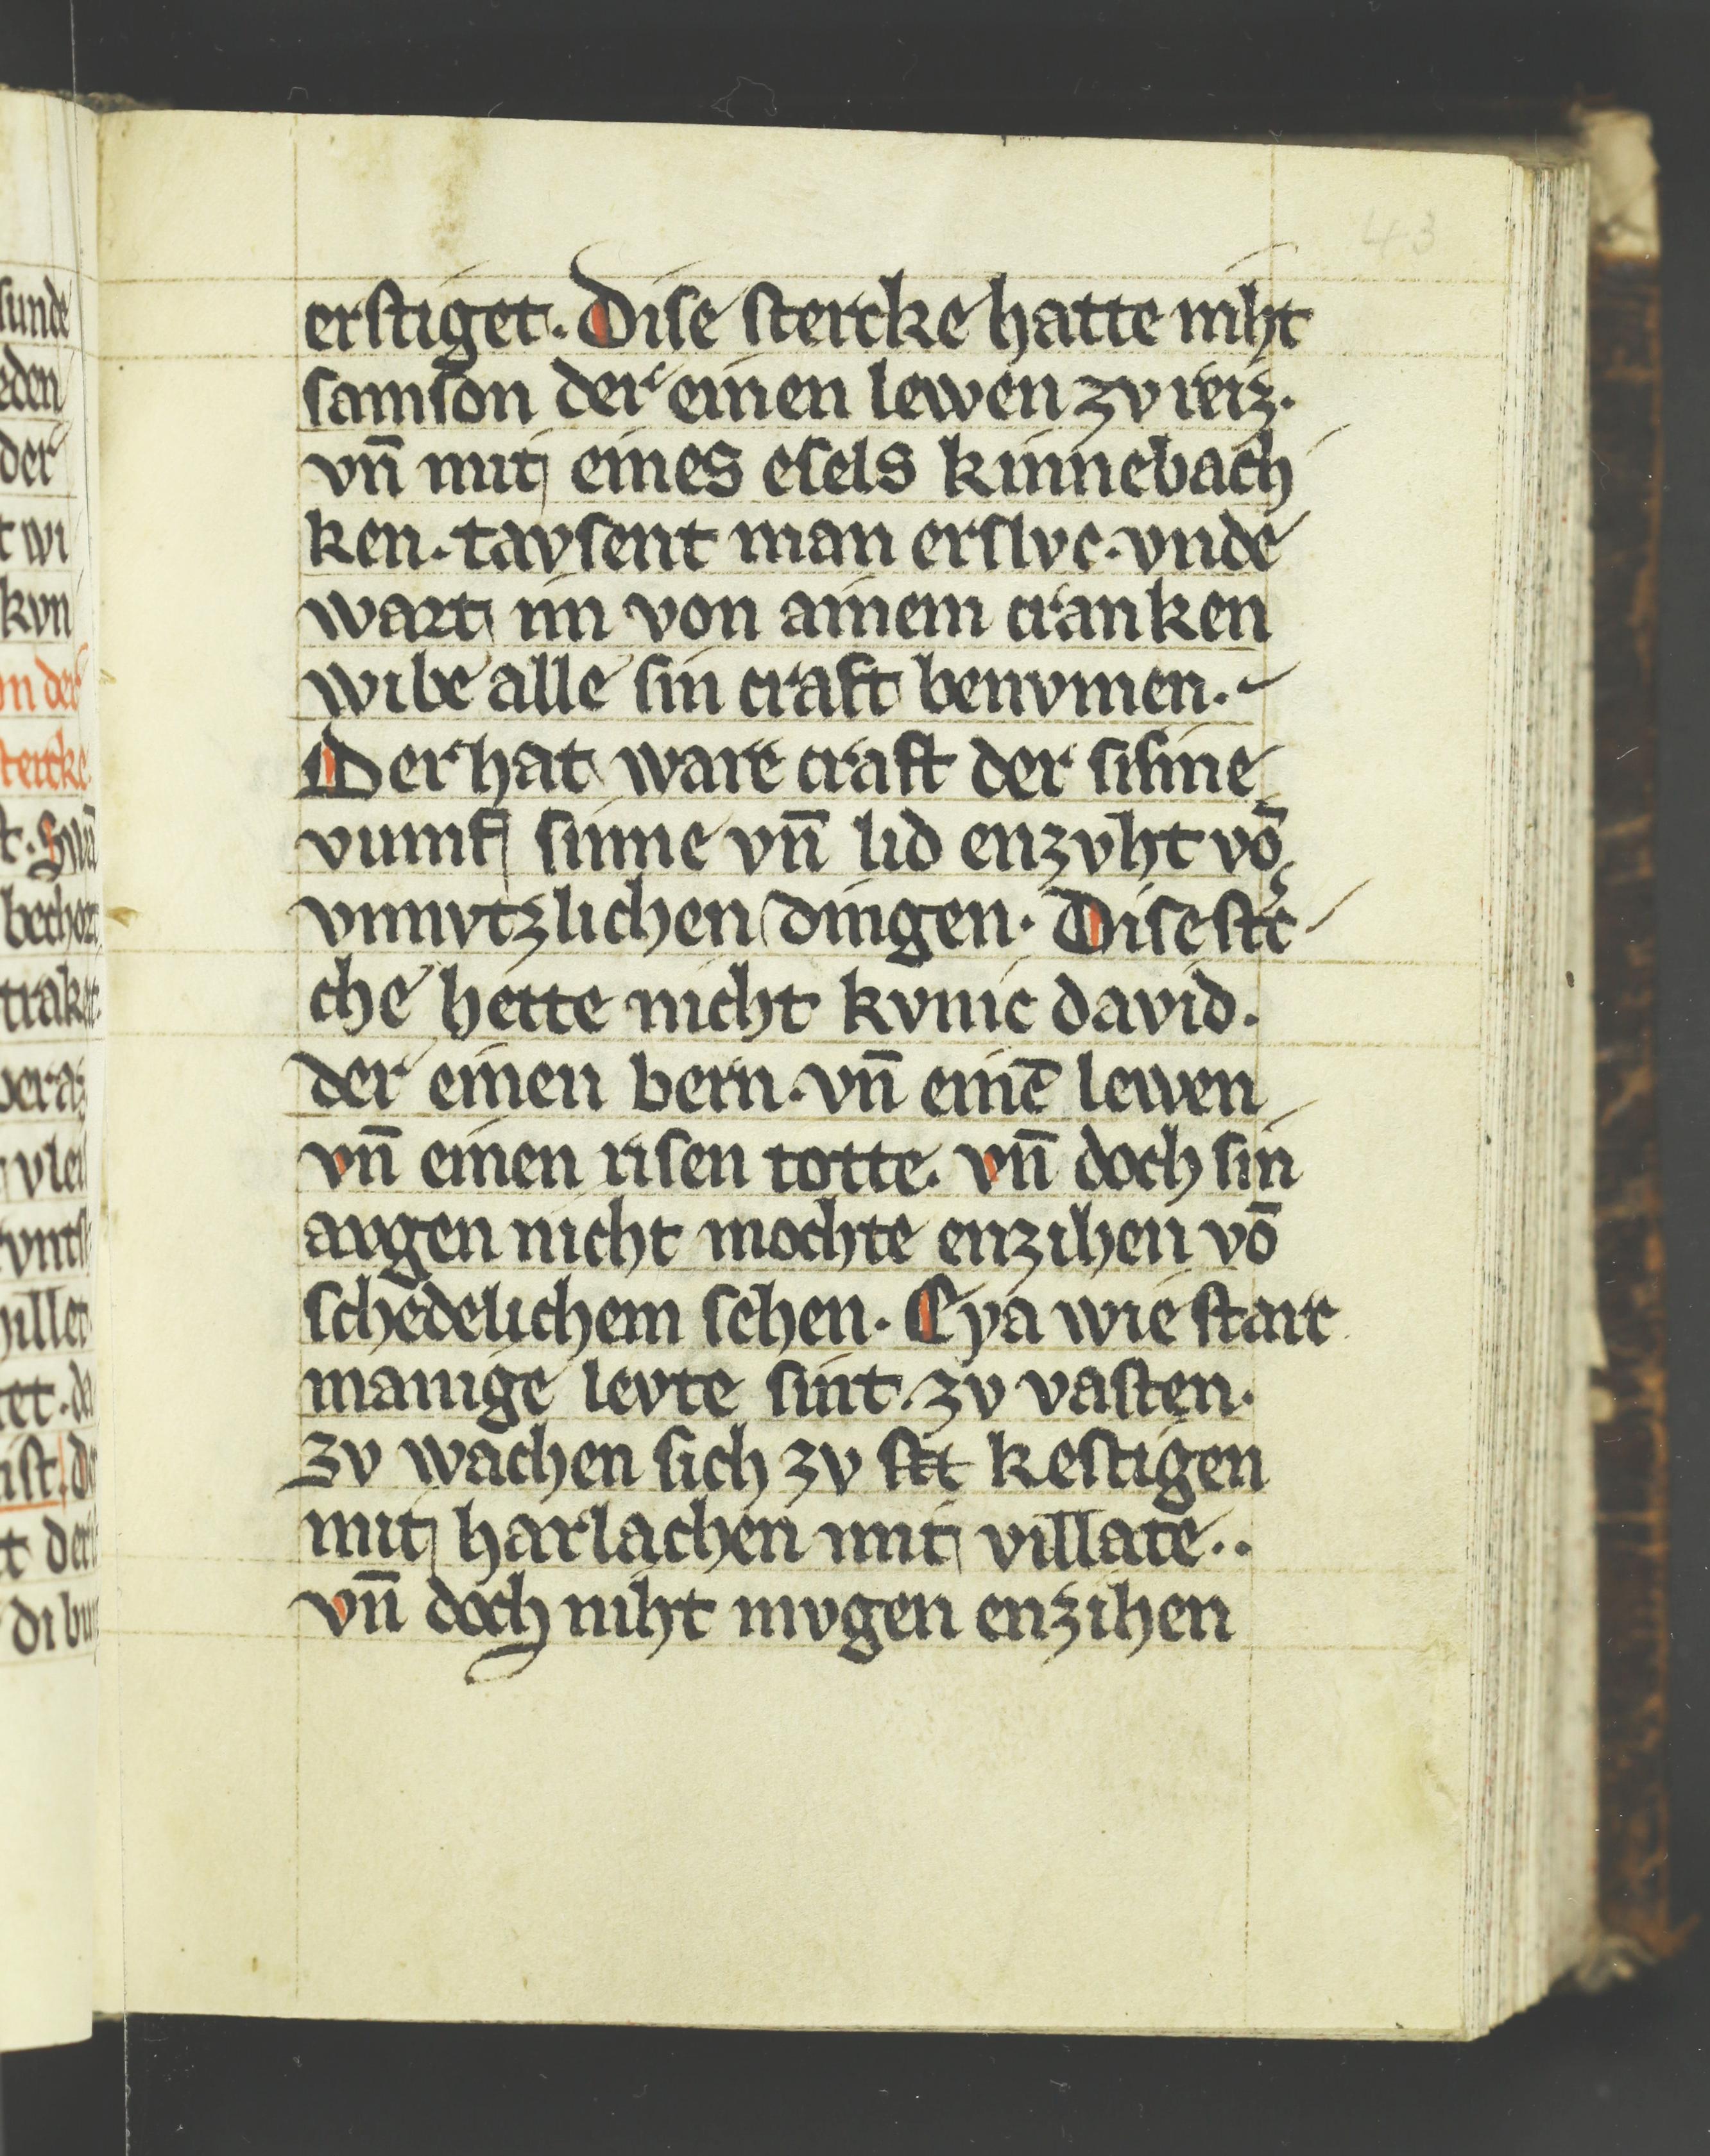 43
erstiget. Dise stercke hatte niht
samson der einen lewen zv reiz.
vn̄ mit eines esels kinnebach
ken. tavsent man erslvc. vnde
wart im von ainem cranken
wibe alle sin craft benvmen.
Der hat ware craft der sihine
vumf sinne vn̄ lid enzvht vō
vnnvtzlichen dingen. Dise stꝛ̉
che hette nicht kvnic david.
der einen bern. vn̄ einē lewen
vn̄ einen risen totte. vn̄ doch sin
avgen nicht mochte enzihen vō
schedelichem sehen. Eya wie starc
manige levte sint. zv vasten.
zv wachen sich zv stet kestigen
mit harlachen mit villate..
vn̄ doch niht mvgen enzihen